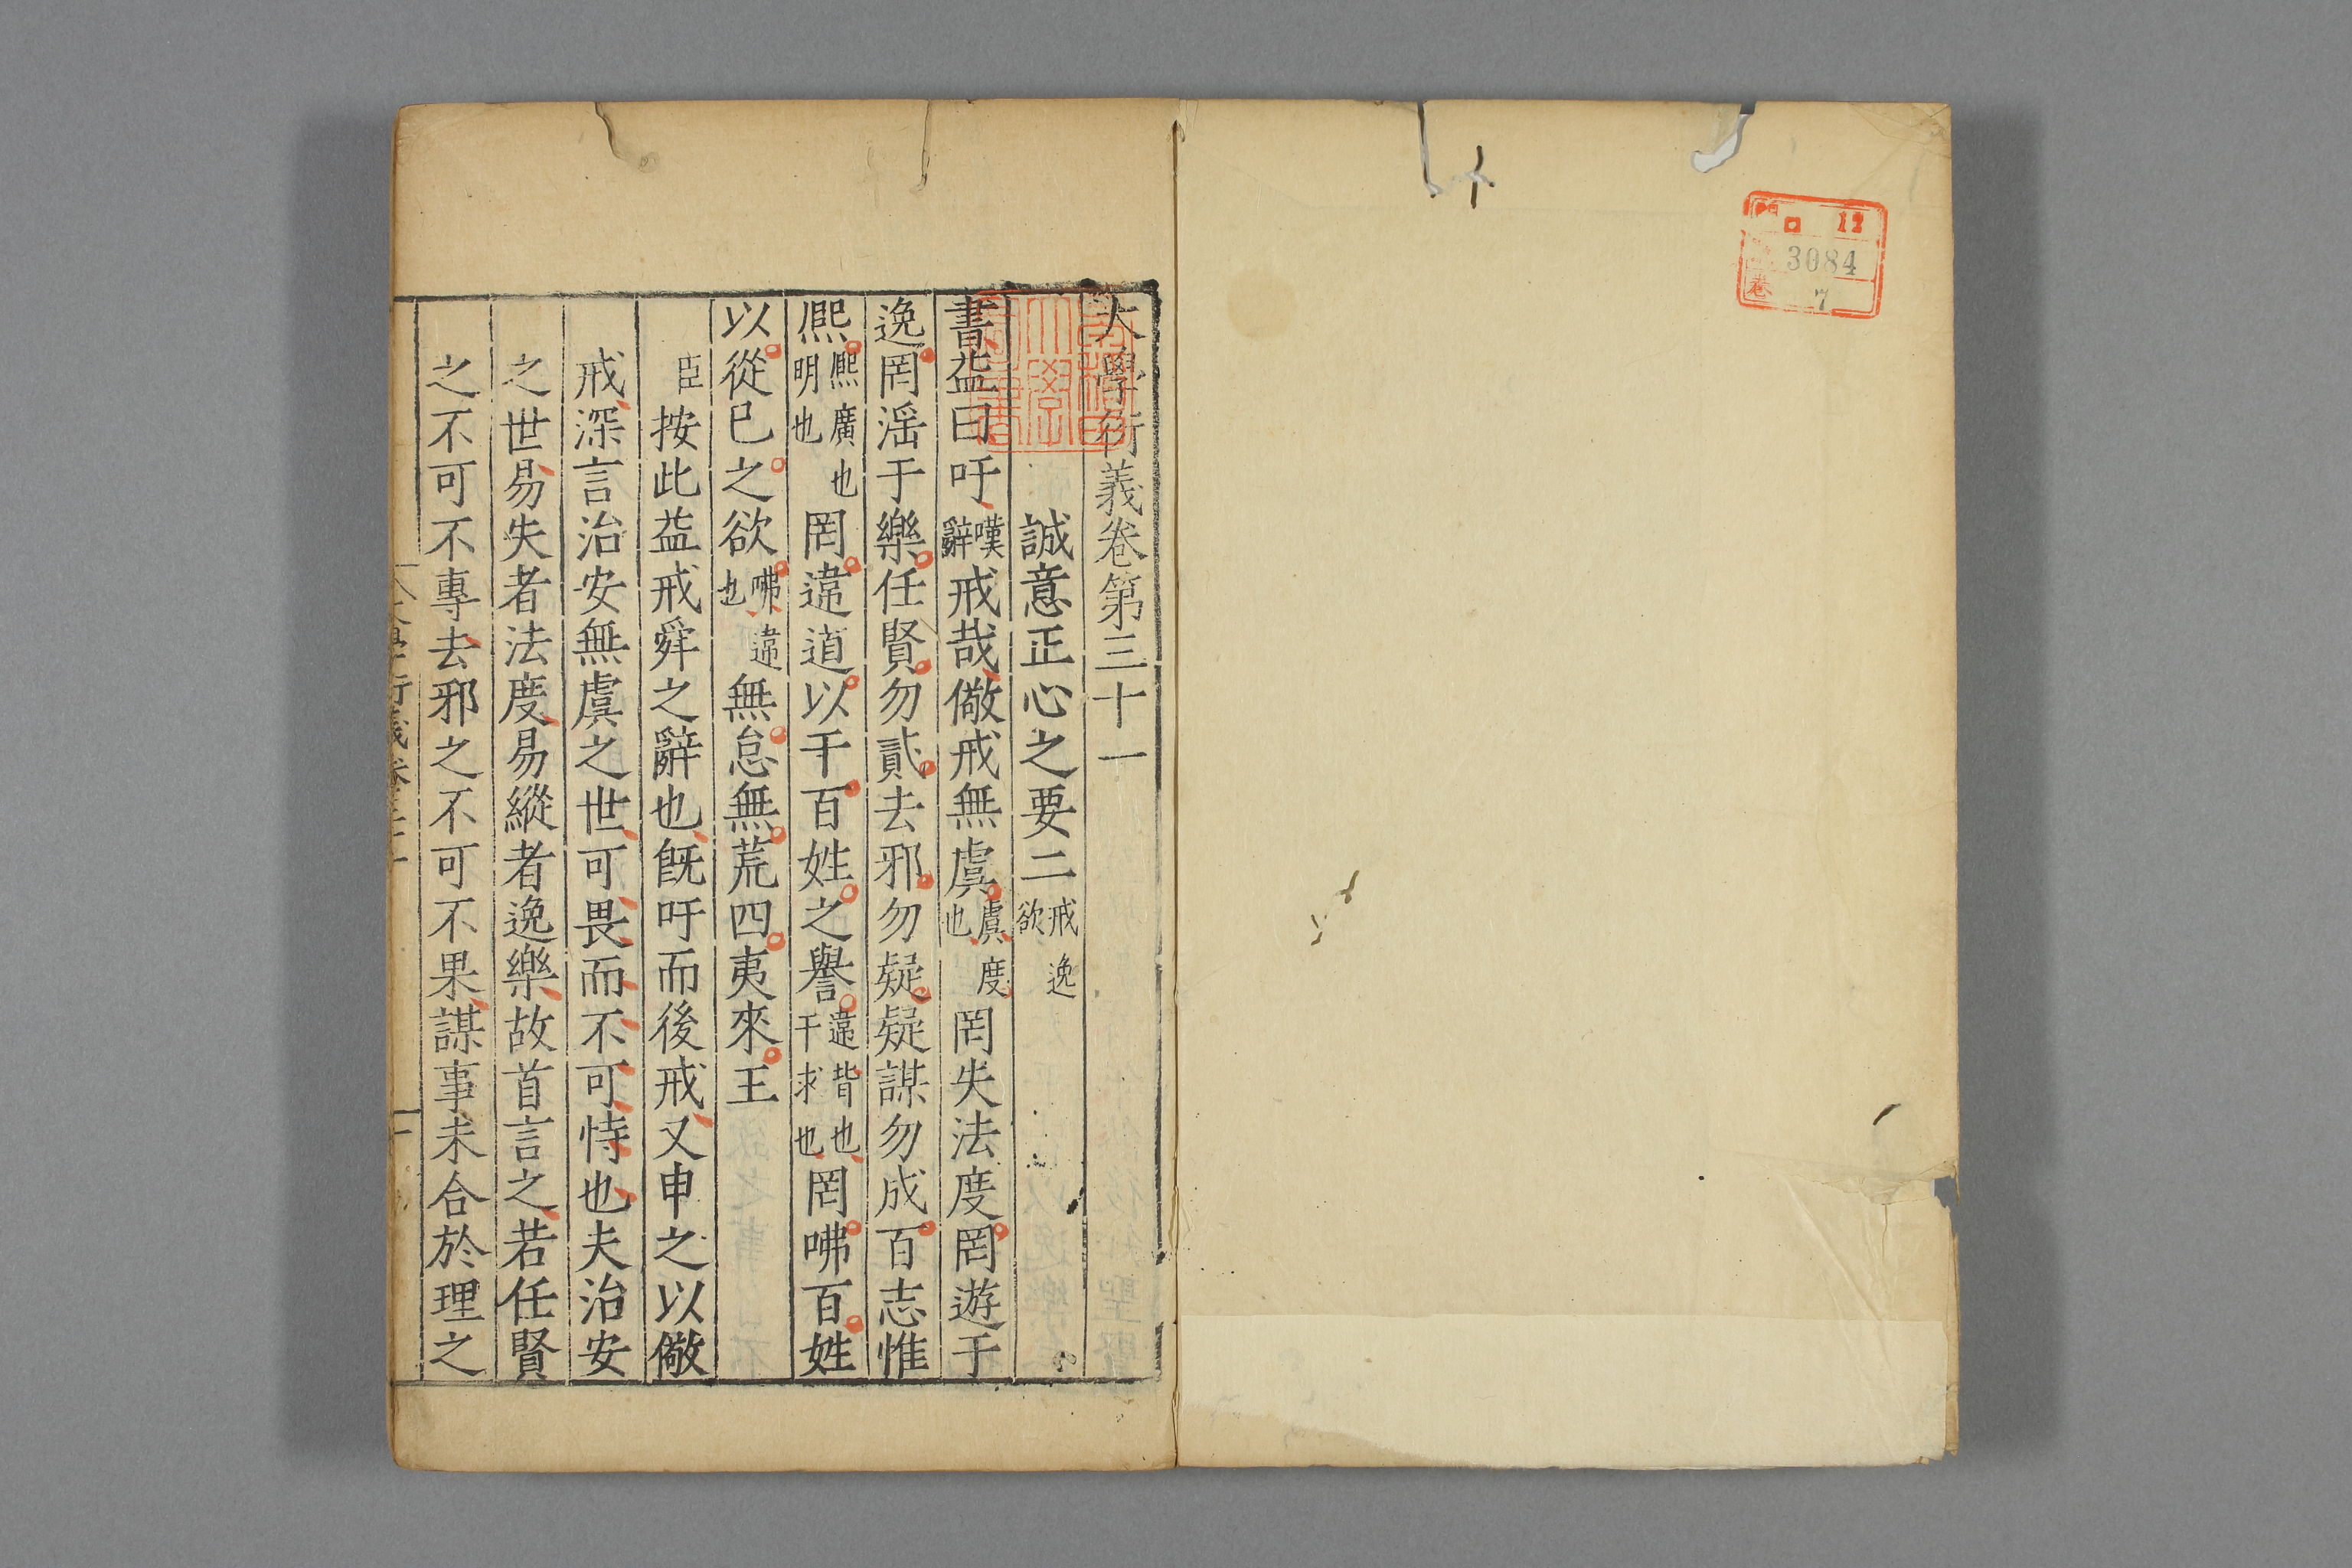 門 ロ 12
3084
巻 7
大學衍義卷第三十一
誠意正心之要二戒逸欲
書益曰吁嘆辭戒哉儆戒無虞虞度也罔失法度罔遊于
逸罔滛于樂任賢勿貳去邪勿疑疑謀勿成百志惟
熈熈廣也明也罔違道以干百姓之譽違背也干求也罔咈百姓
以從已之欲咈違也無怠無荒四夷來王
臣按此益戒舜之辭也旣吁而後戒又申之以儆
戒深言治安無虞之世可畏而不可恃也夫治安
之世易失者法度易縱者逸樂故首言之若任賢
之不可不專去邪之不可不果謀事未合於理之